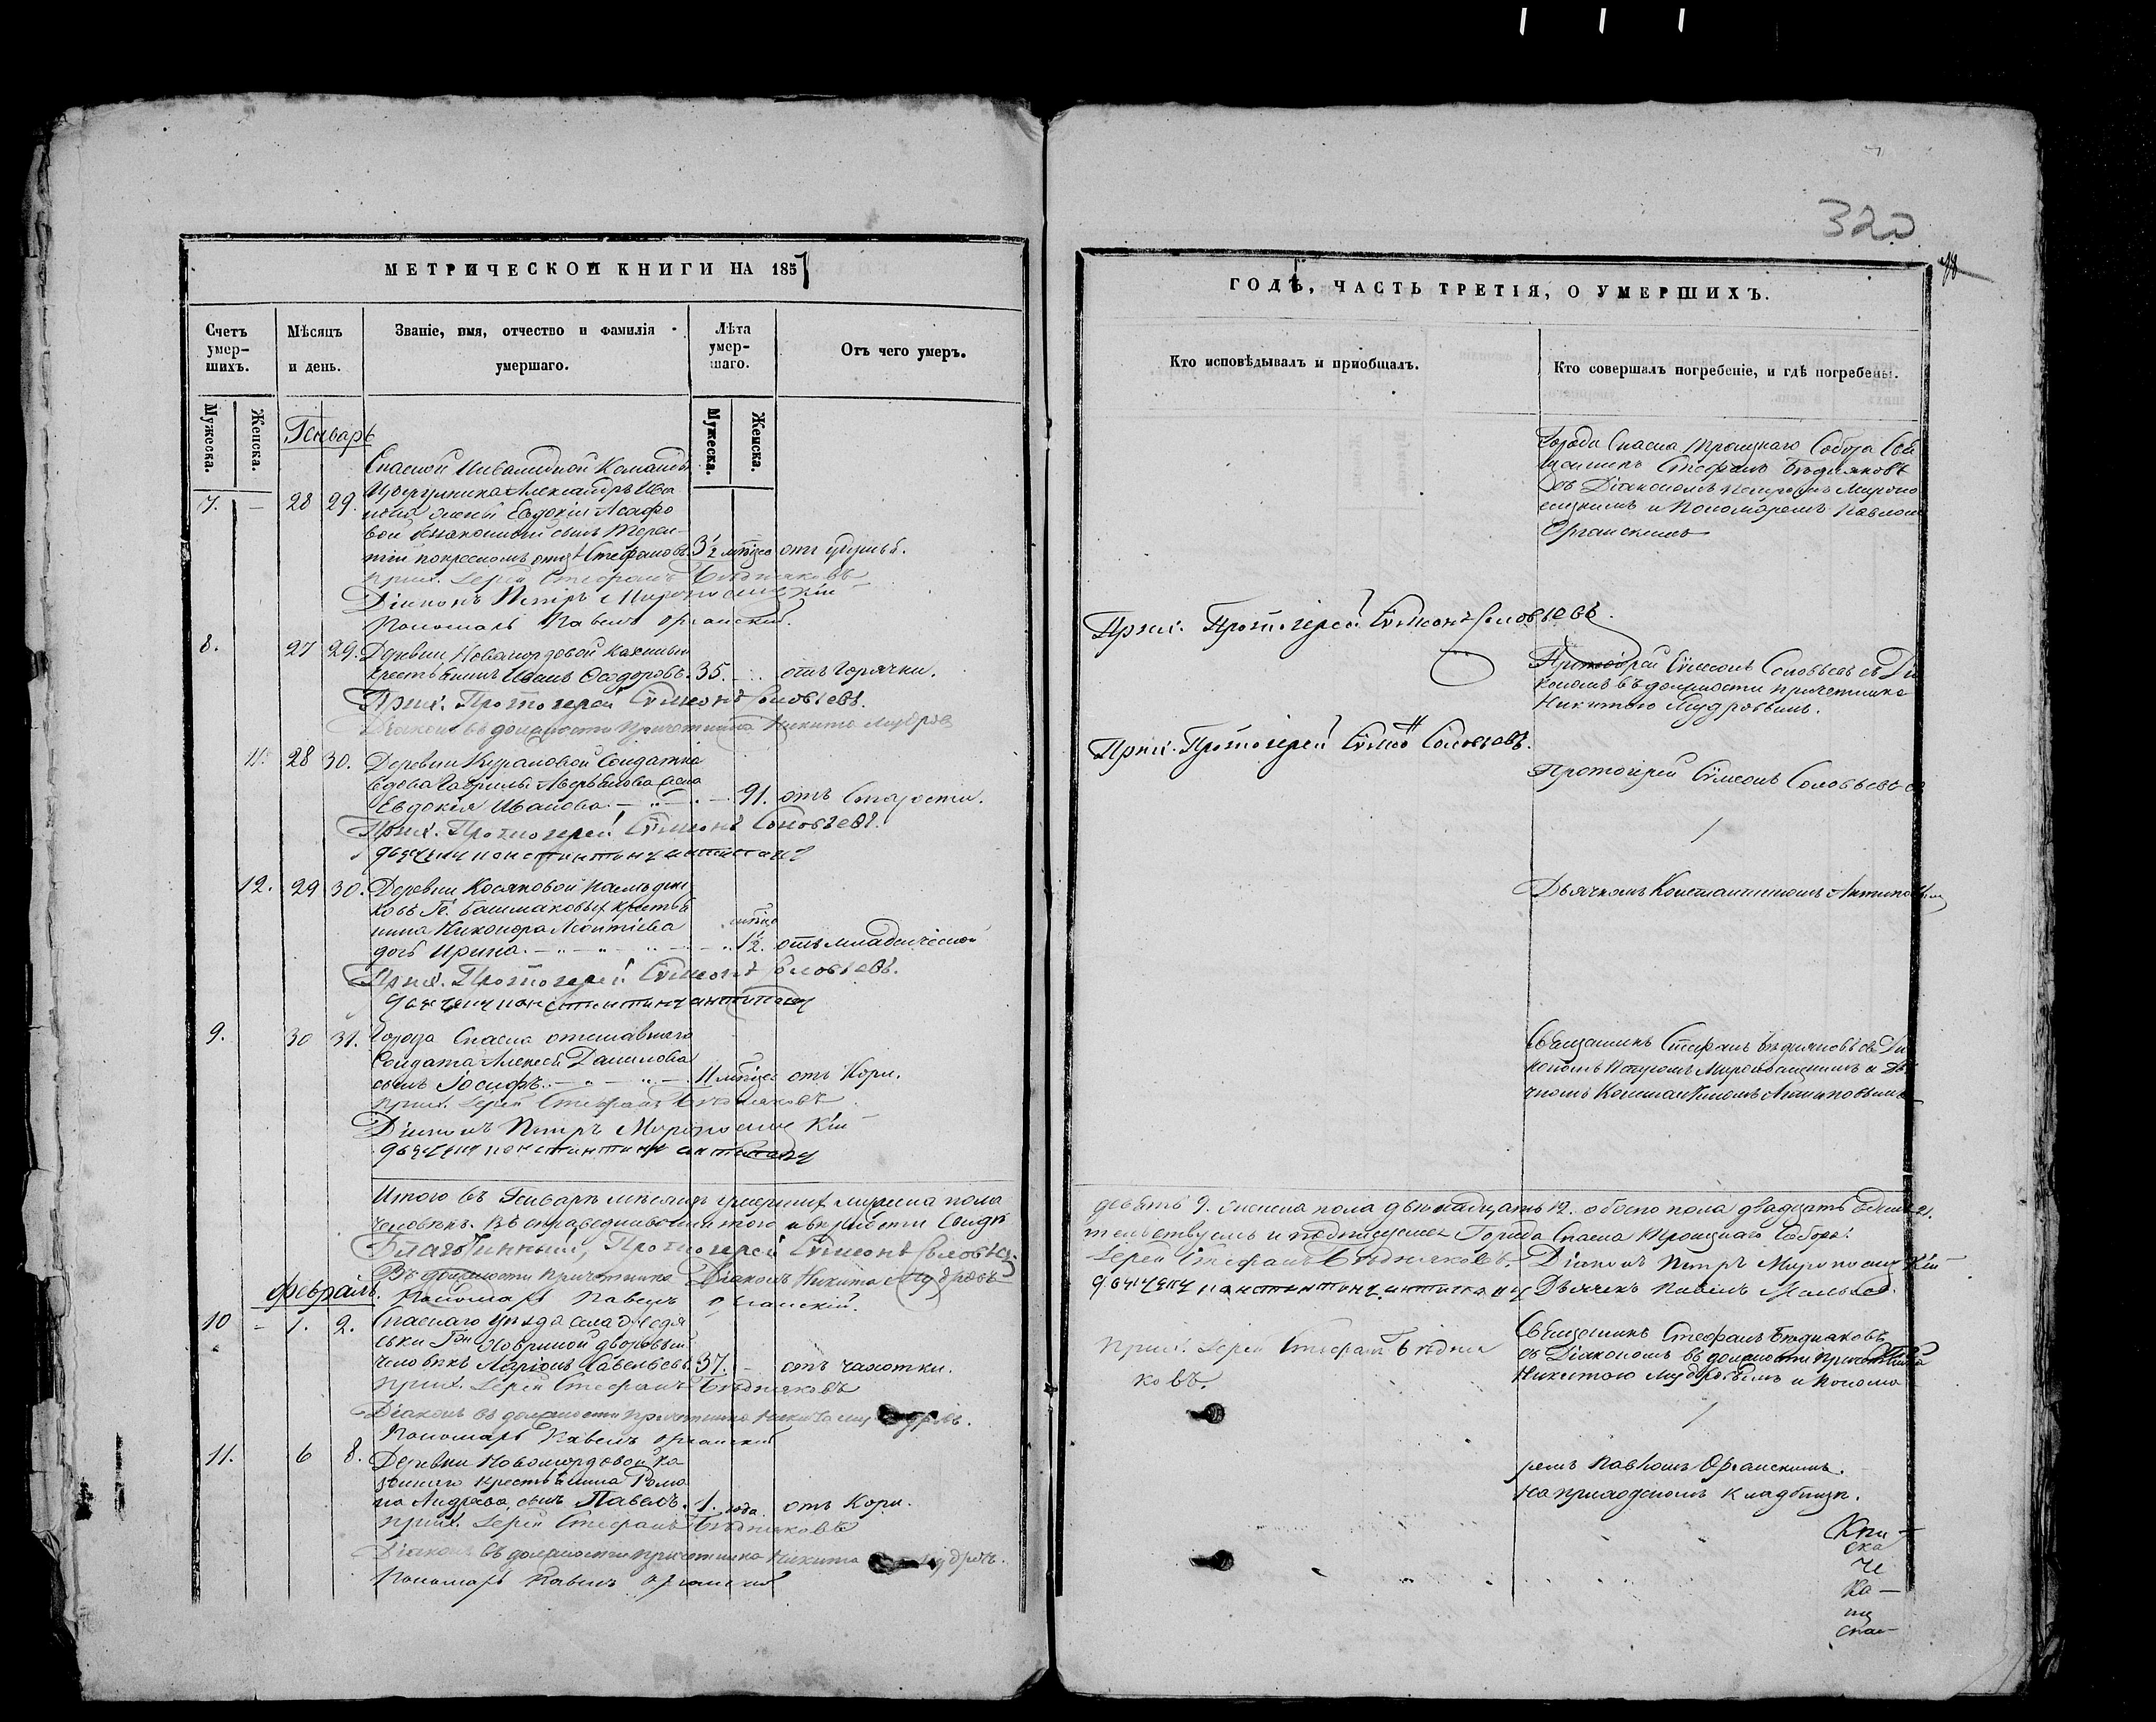 320
МЕТРИЧЕСКОЙ КНИГИ НА 1857
Счетъ умер-
шихъ.
Мѣсяцъ
и день.
Званіе, имя, отчество и фамилія
умершаго.
Лѣта
умер-
шаго.
Отъ чего умеръ.
Мужеска.
Женска.
Мужеска.
Женска.
Генварь
Спасской Инвалидной Команды
7. — 28 29.
жены Евдокіи Агафо
вой незаконный сынъ Терен-
тій по крестномъ отцѣ Стефановъ 3½ мѣсяца отъ удушья.
прих. Іерей Стефанъ Бѣдняковъ
Діаконъ Петръ
Пономарь Павелъ Органскій.
8. 27 29. Деревни Новомордовой казенный
крестьянинъ Иванъ Ѳедоровъ. 35. отъ горячки.
Прих. Протоіерей Сѵмеонъ Соловьевъ.
Діаконъ въ должности причетника Никита Мудровъ
11. 28 30. Деревни Кураловой Солдатка
вдова Гаврилы
Евдокія Иванова 91. отъ Старости.
Прих. Протоіерей Сѵмеонъ Соловьевъ.
дьячекъ константинъ антиповъ
12. 29 30. Деревни Косяковой наслѣдни
ковъ Гг. Башмаковыхъ крестья
нина Никонора
дочь Ирина мѣсяц 1½. отъ младенческой
Прих. Протоіерей Сѵмеонъ Соловьевъ.
дьячекъ константинъ антиповъ
9. 30 31. Города Спасска отставнаго
Солдата Алексѣя Данилова
сынъ Іосифъ. 11 мѣсяц отъ Кори.
прих. Іерей Стефанъ Бѣдняковъ
Діаконъ Петръ
дьячекъ константинъ антиповъ
Итого въ Генварѣ мѣсяцѣ умершихъ мужеска пола
человѣкъ. Въ справедливости того и вѣрности Свидѣ
Благочинный, Протоіерей Сѵмеонъ Соловьев.
Въ должности причетника Діаконъ Никита Мудровъ
Пономарь Павелъ Органскій.
Февраль.
10 - 1. 2. Спасскаго уѣзда села
дворовый
человѣкъ Ларіонъ Савельевъ 37. отъ чахотки.
прих. Іерей Стефанъ Бѣдняковъ
Діаконъ въ должности причетника Никита Мудровъ.
Пономарь Павелъ Органскій
11. 6 8. Деревни Новомордовой ка
зеннаго крестьянина Рома
на Андреева сынъ Павелъ. 1. года. отъ Кори.
прих. Іерей Стефанъ Бѣдняковъ
Діаконъ въ должности причетника Никита Мудровъ.
Пономарь Павелъ Органскій
ГОДЪ, ЧАСТЬ ТРЕТІЯ, О УМЕРШИХЪ.
Кто исповѣдывалъ и пріобщалъ.
Кто совершалъ погребеніе, и гдѣ погребены.
Города Спасска Троицкаго Собора Свя
щенникъ Стефанъ Бѣдняковъ
съ Діакономъ Петромъ
и Пономаремъ Павломъ
Органскимъ
Прих. Протоіерей Сѵмеонъ Соловьевъ.
Протоіерей Сѵмеонъ Соловьевъ съ Діа
кономъ въ должности причетника
Никитою Мудровымъ.
Прих. Протоіерей Сѵмеонъ Соловьевъ.
Протоіерей Сѵмеонъ Соловьевъ съ
Дьячкомъ Константиномъ Антиповымъ
Священникъ Стефанъ Бѣдняковъ съ Діа
кономъ Петромъ и Дья
чкомъ Константиномъ Антиповымъ
девять 9. женска пола двѣнадцать 12. обоего пола двадцать одинъ 21.
тельствуемъ и подписуемся Города Спасска Троицкаго Собора:
Іерей Стефанъ Бѣдняковъ. Діаконъ Петръ
дьячекъ константинъ антиповъ Дьячекъ Павелъ
прих. Іерей Стефанъ Бѣдня
ковъ.
Священникъ Стефанъ Бѣдняковъ
съ Діакономъ въ должности причетника
Никитою Мудровымъ и Понома
ремъ Павломъ Органскимъ.
На приходскомъ кладбищѣ.